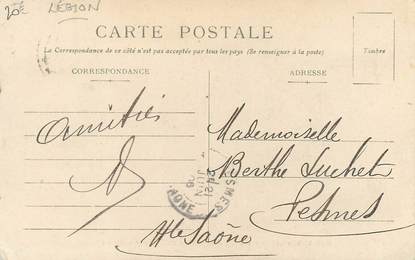 20E LÉGION
CARTE POSTALE
La Correspondance de ce côté n'est pas acceptée par tous les pays (Se renseigner à la poste)
Timbre
CORRESPONDANCE
ADRESSE
Amitiés
Mademoiselle
Berthe Luchet
Pesmes
Hte Saône